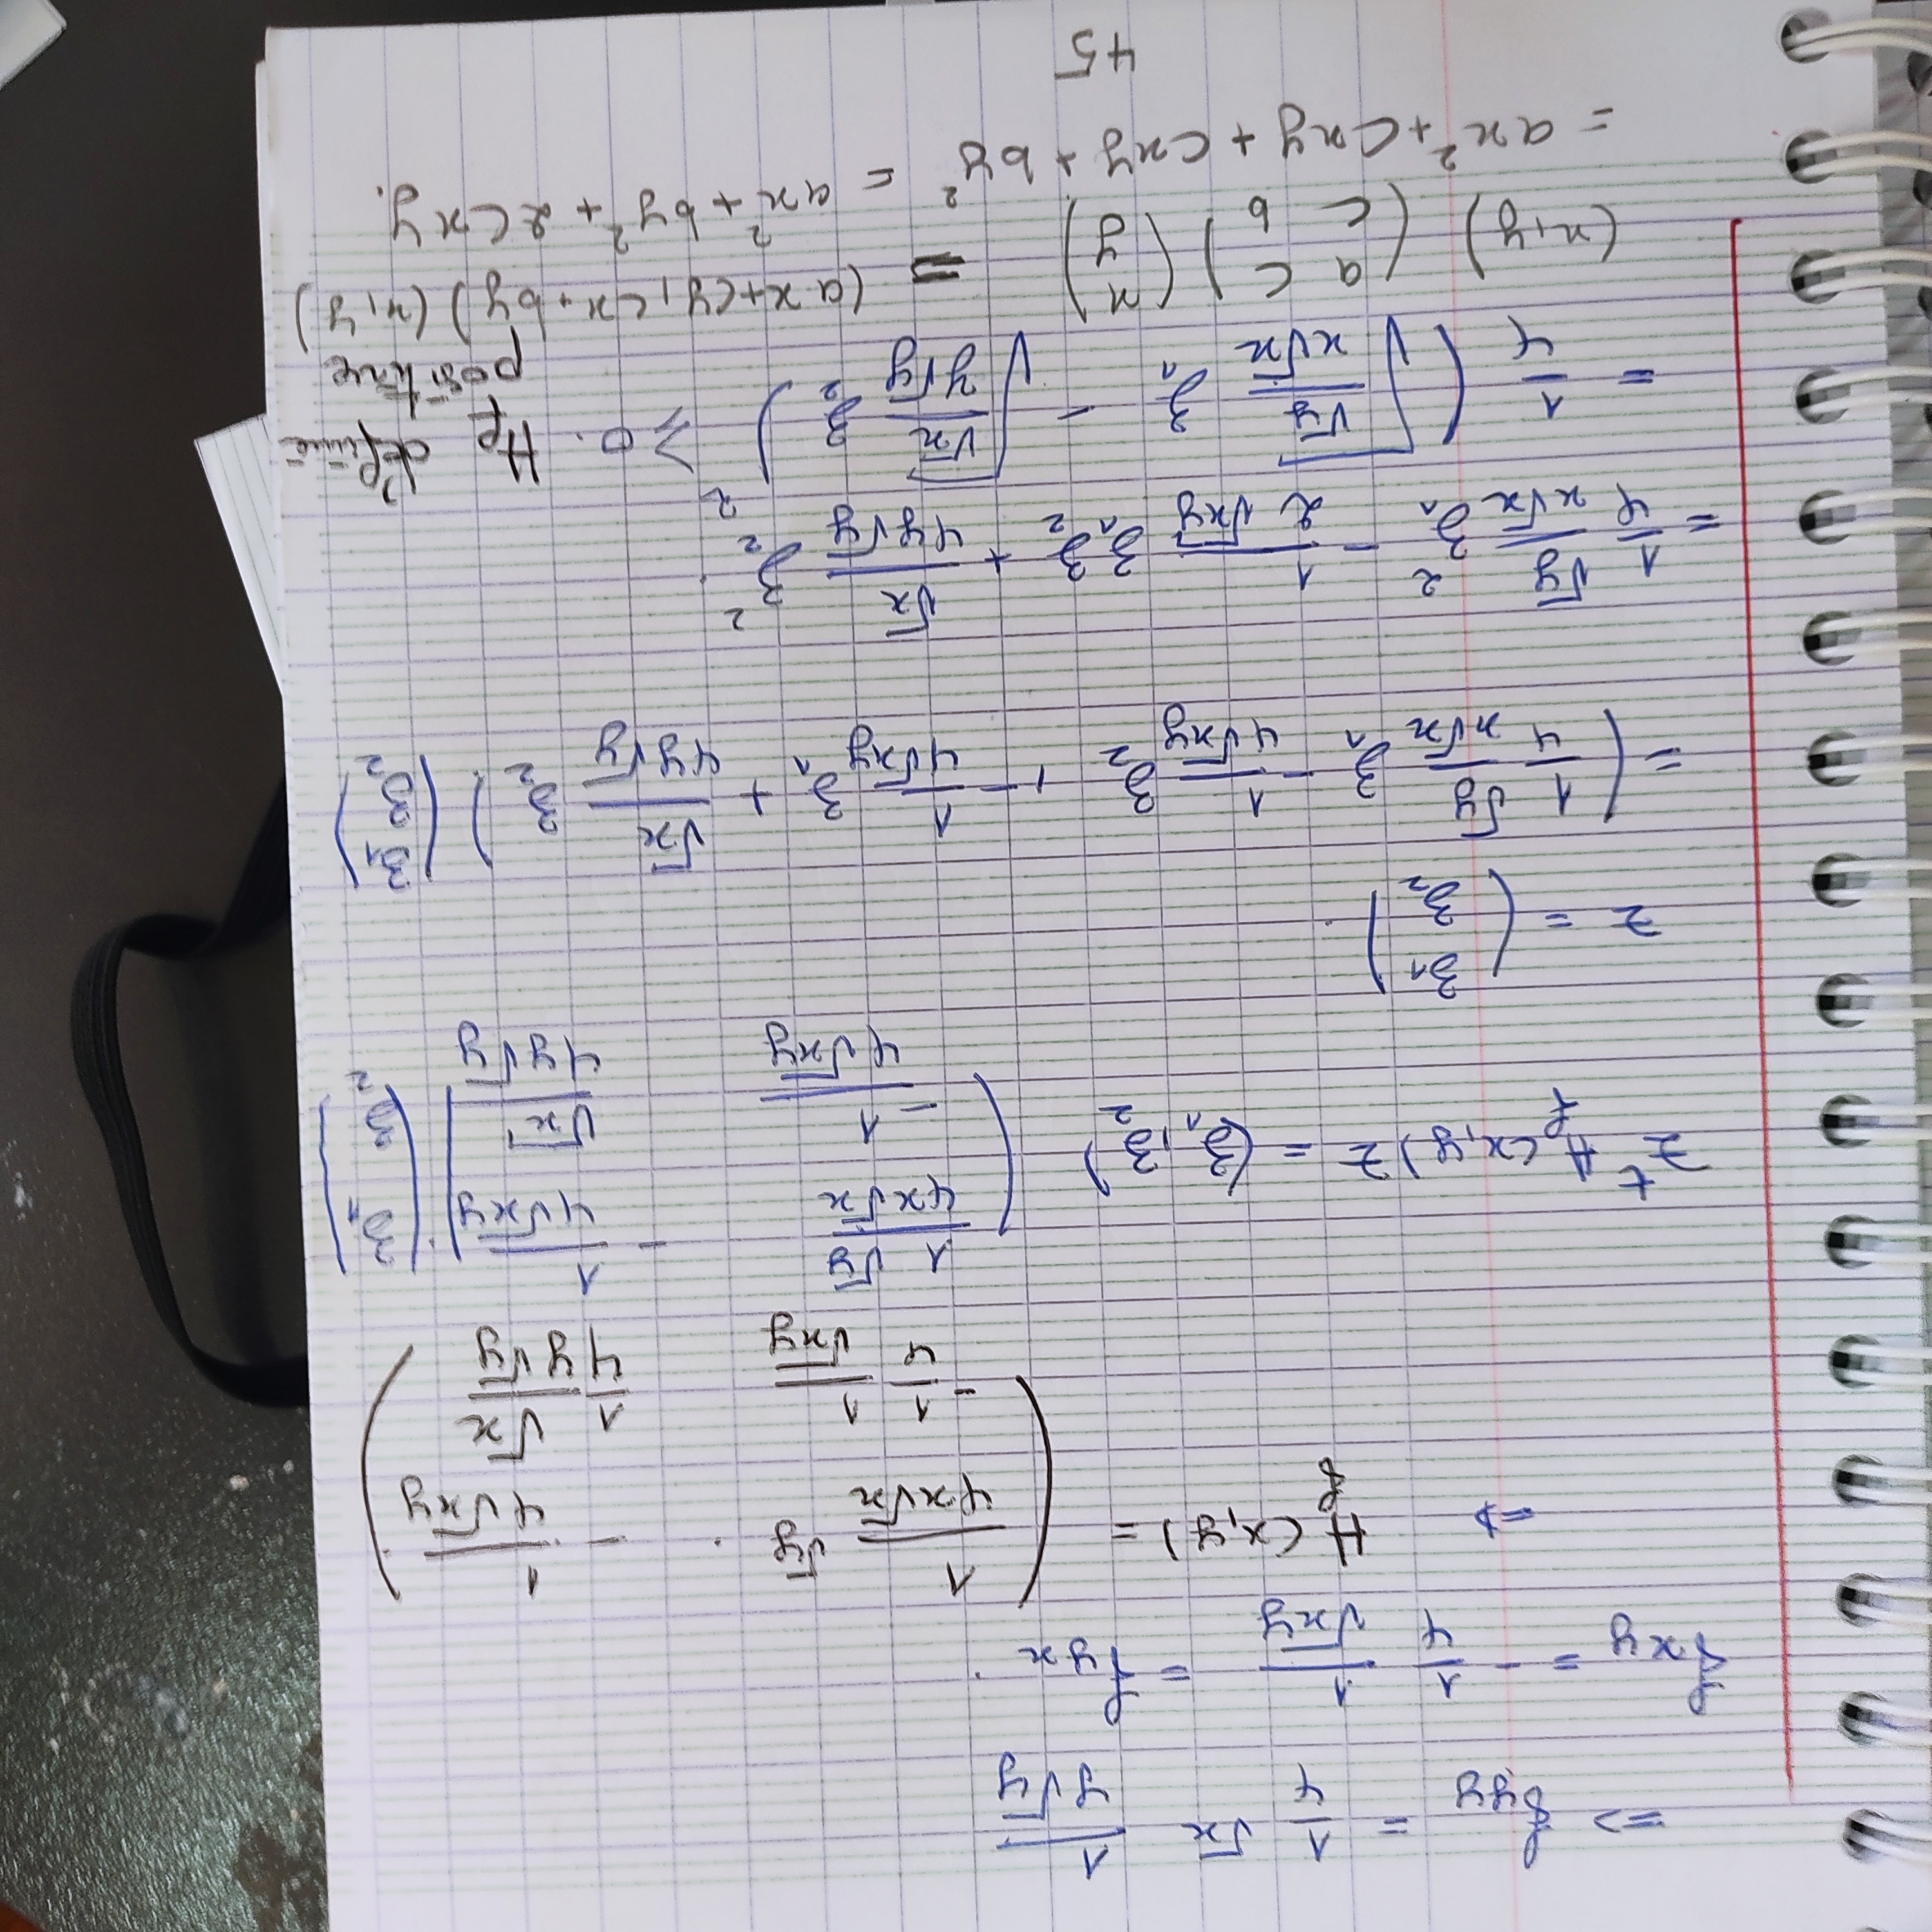 => f_yy = 1/4 √x 1/(y√y)
f_xy = - 1/4 1/√xy = f_yx .
=> H_f (x,y) = ( 1/(4x√x) √y . - 1/(4√xy) ; - 1/4 1/√xy 1/4 √x/(y√y) )
z^t H_f (x,y) z = (z_1, z_2) ( 1√y/(4x√x) - 1/(4√xy) ; -1/(4√xy) √x/(4y√y) ) ( z_1 ; z_2 )
z = ( z_1 ; z_2 ) .
= ( 1/4 √y/(x√x) z_1 - 1/(4√xy) z_2 , - 1/(4√xy) z_1 + √x/(4y√y) z_2 ) ( z_1 ; z_2 )
= 1/4 √y/(x√x) z_1^2 - 1/(2√xy) z_1 z_2 + √x/(4y√y) z_2^2 .
= 1/4 ( √(√y/(x√x)) z_1 - √(√x/(y√y)) z_2 )^2 ≥ 0. H_f définie
positive
(x,y) ( a c ; c b ) ( x ; y ) = (ax+cy, cx+by) (x,y)
= ax^2 + cxy + cxy + by^2 = ax^2 + by^2 + 2cxy.
45